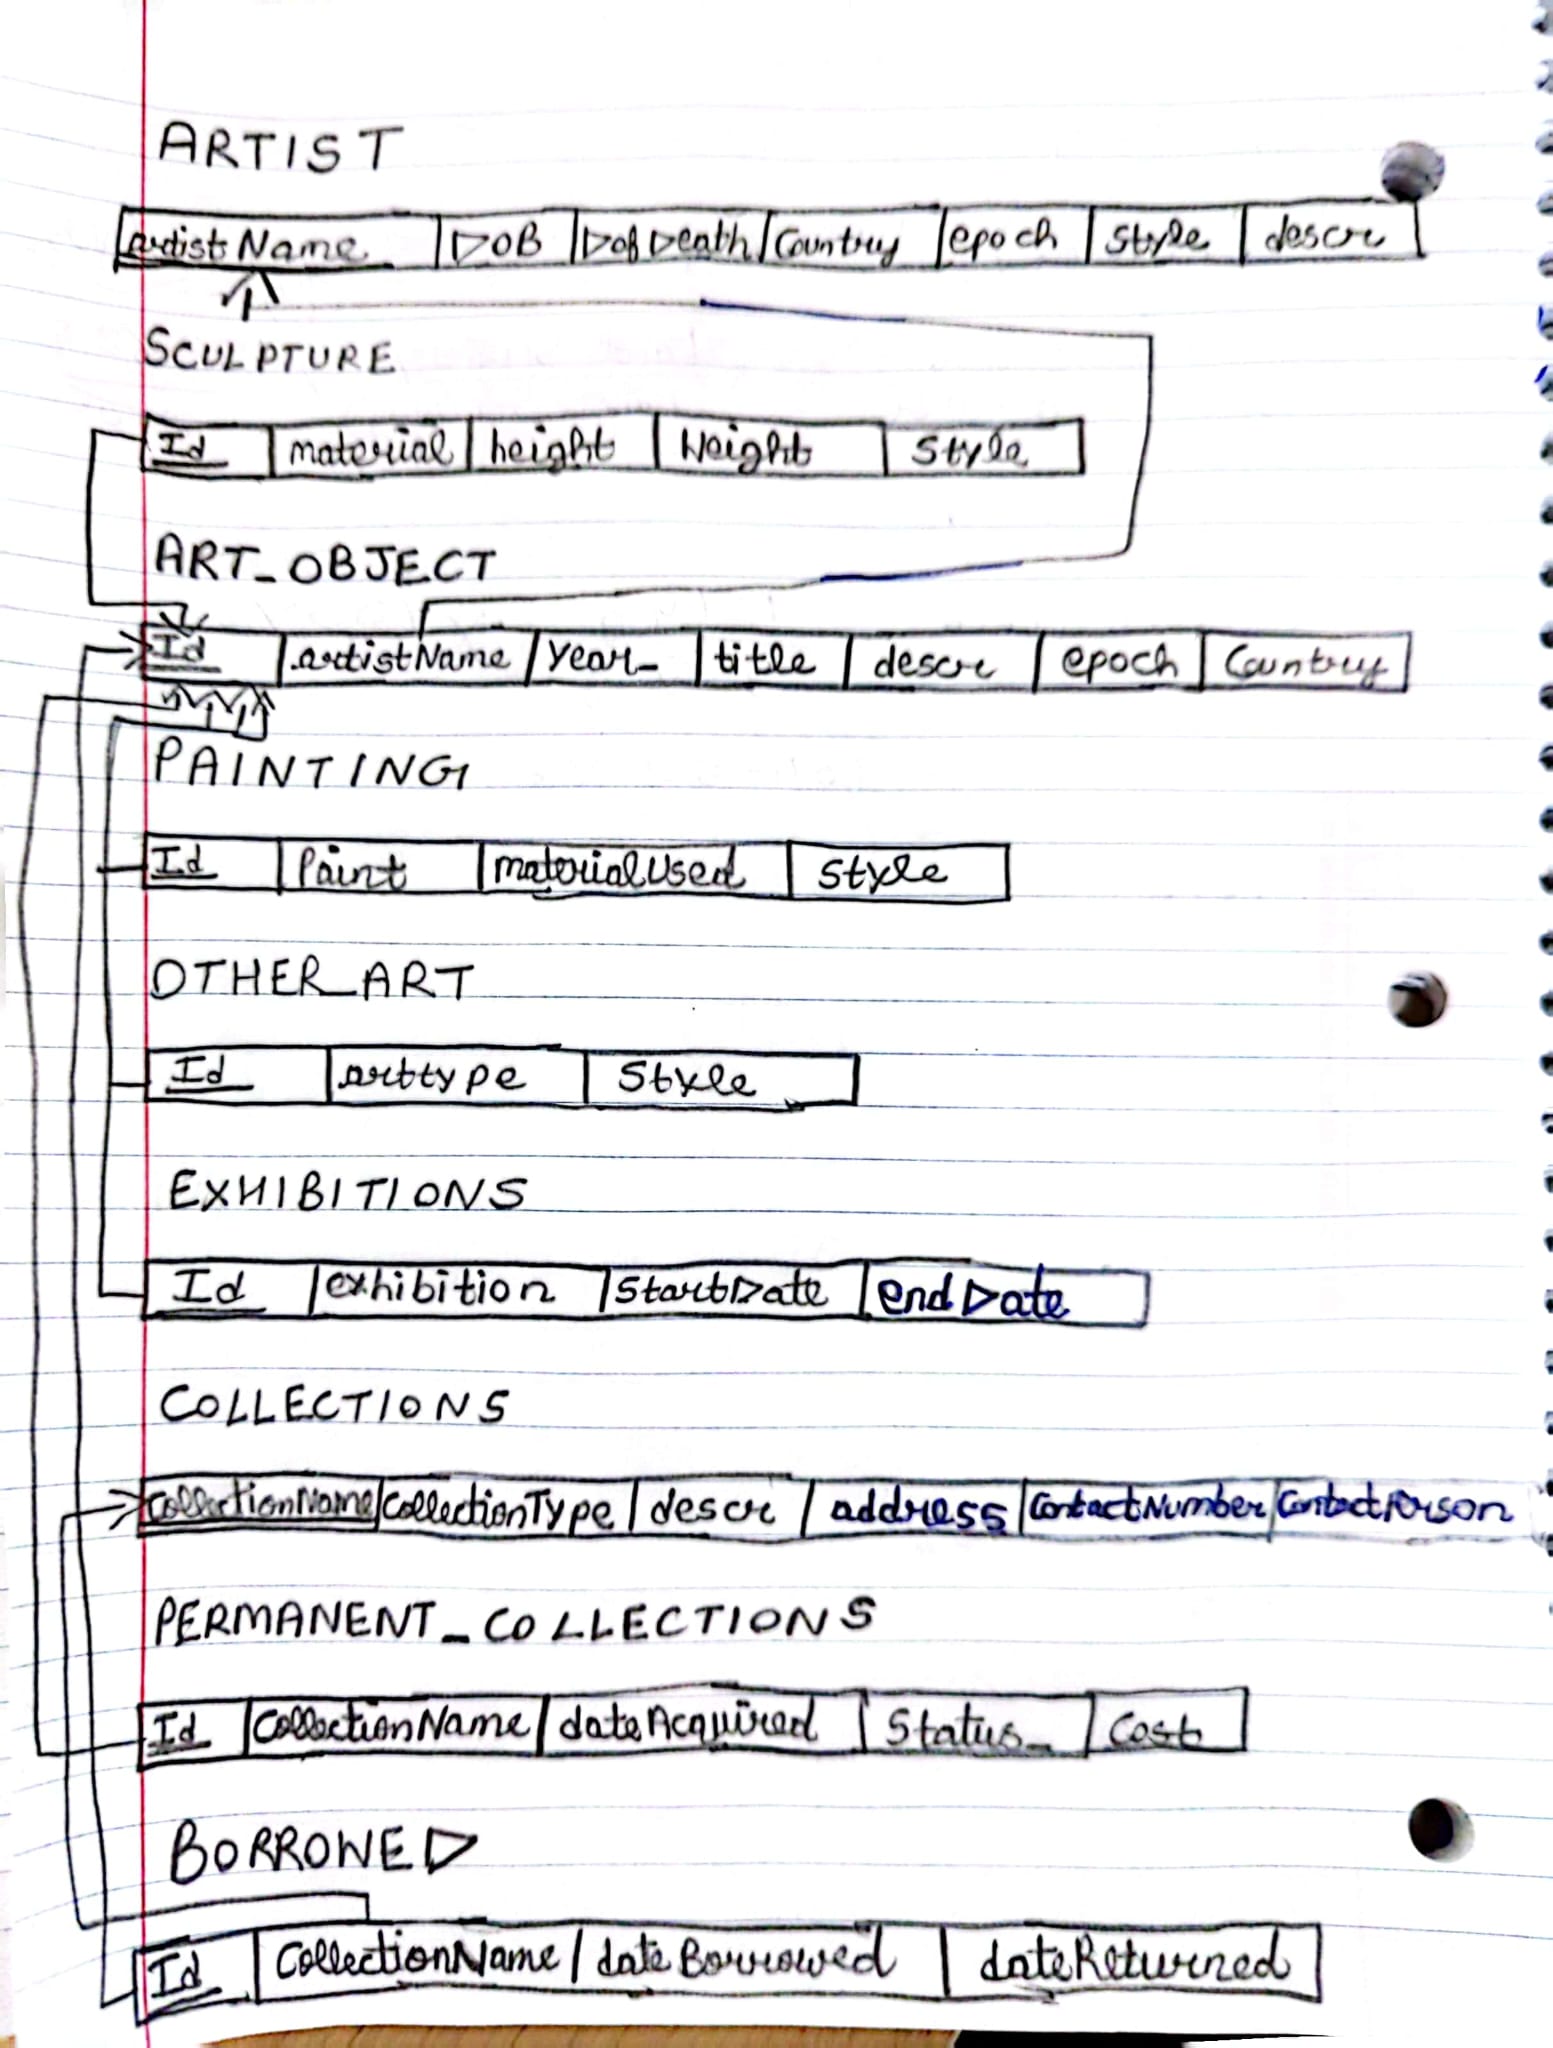 ARTIST
artistName DOB DofDeath Country epoch Style descr
SCULPTURE
Id material height Weight Style
ART_OBJECT
Id artistName year_ title descr epoch Country
PAINTING
Id Paint materialUsed Style
OTHER_ART
Id arttype Style
EXHIBITIONS
Id exhibition StartDate endDate
COLLECTIONS
CollectionName CollectionType descr address ContactNumber ContactPerson
PERMANENT_COLLECTIONS
Id CollectionName dateAcquired Status_ Cost
BORROWED
Id CollectionName dateBorrowed dateReturned